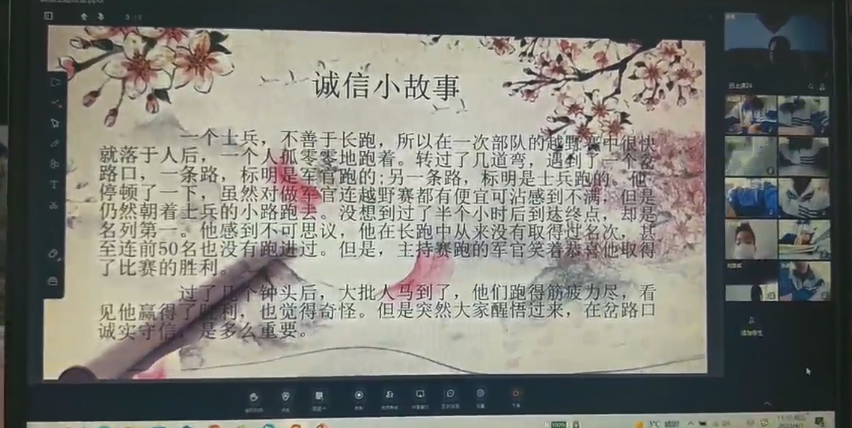 诚信小故事
一个士兵，不善于长跑，所以在一次部队的越野赛中很快
就落于人后，一个人孤零零地跑着。转过了几道弯，遇到了一个岔
路口，一条路，标明是军官跑的;另一条路，标明是士兵跑的。他
停顿了一下，虽然对做军官连越野赛都有便宜可沾感到不满，但是
仍然朝着士兵的小路跑去。没想到过了半个小时后到达终点，却是
名列第一。他感到不可思议，他在长跑中从来没有取得过名次，甚
至连前50名也没有跑进过。但是，主持赛跑的军官笑着恭喜他取得
了比赛的胜利。
过了几个钟头后，大批人马到了，他们跑得筋疲力尽，看
见他赢得了胜利，也觉得奇怪。但是突然大家醒悟过来，在岔路口
诚实守信，是多么重要。
3°C